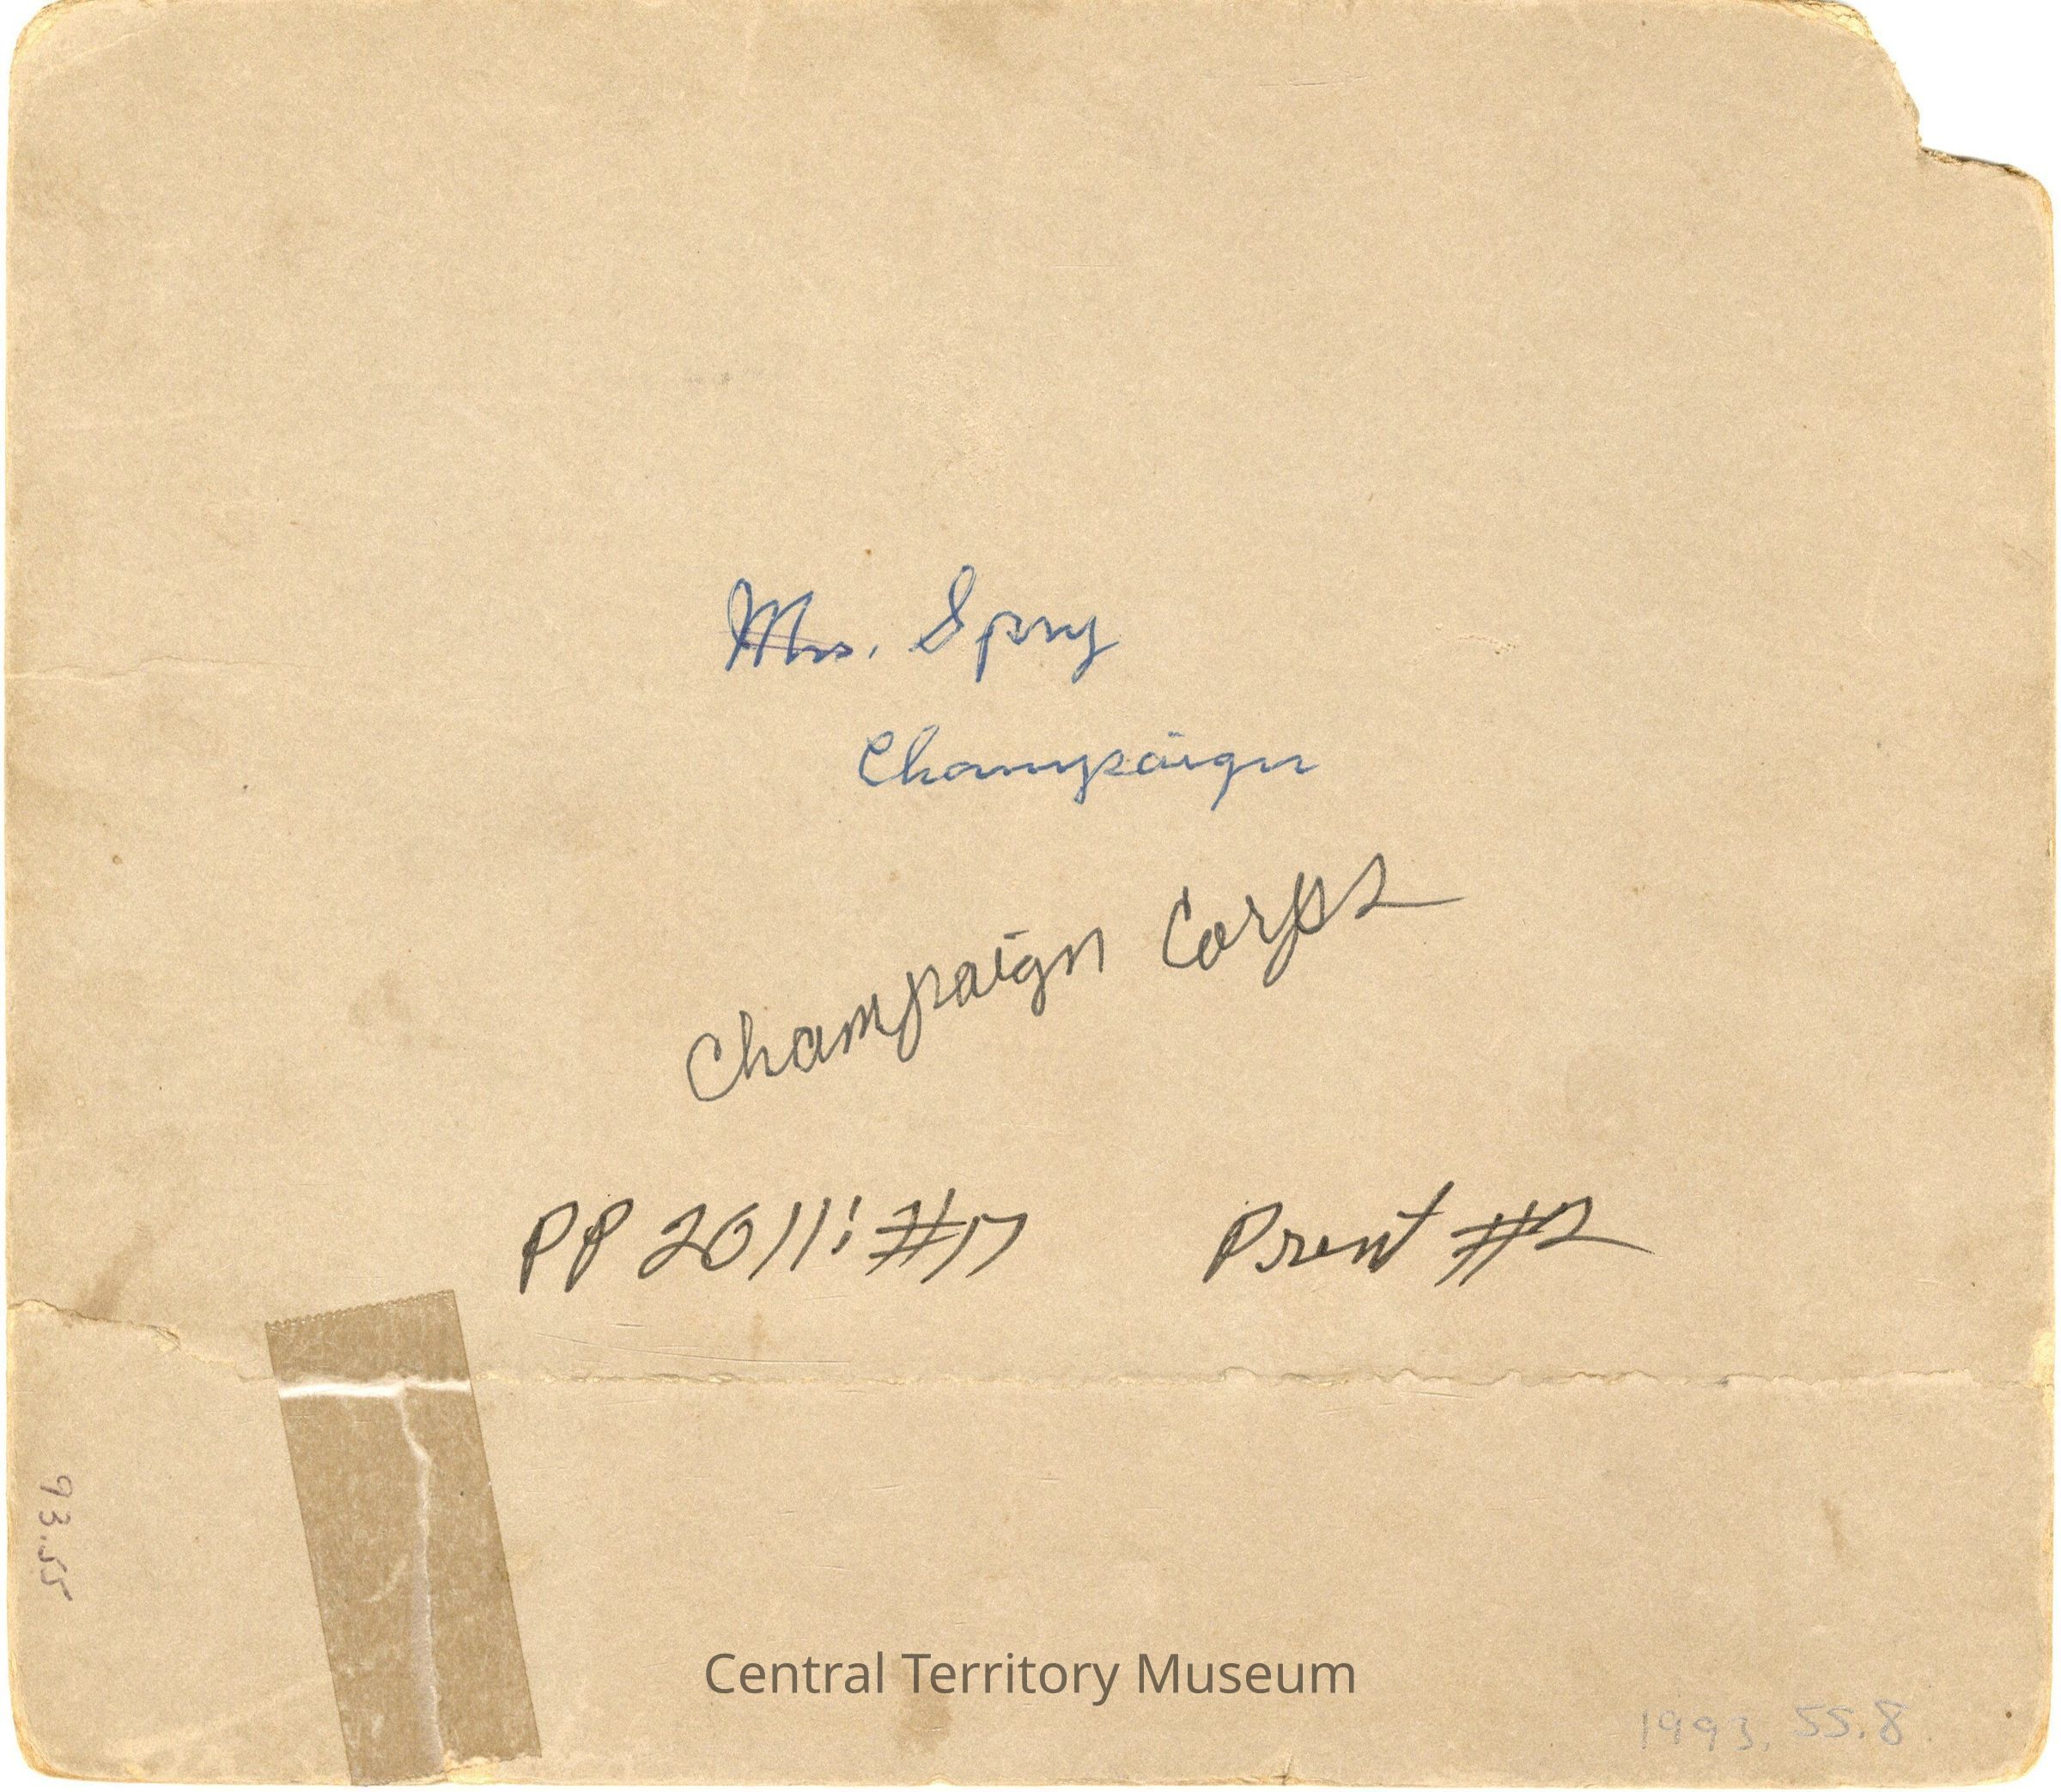 Mrs. Spry
Champaign
Champaign Corps
PP 2011: #17 Print #2
93.55
Central Territory Museum
1993.55.8